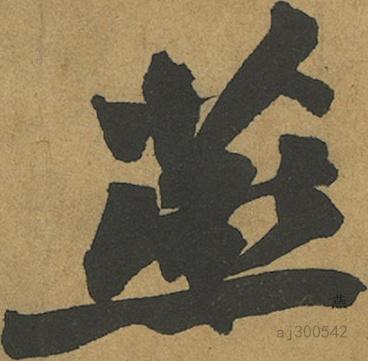 燕
燕
aj300542